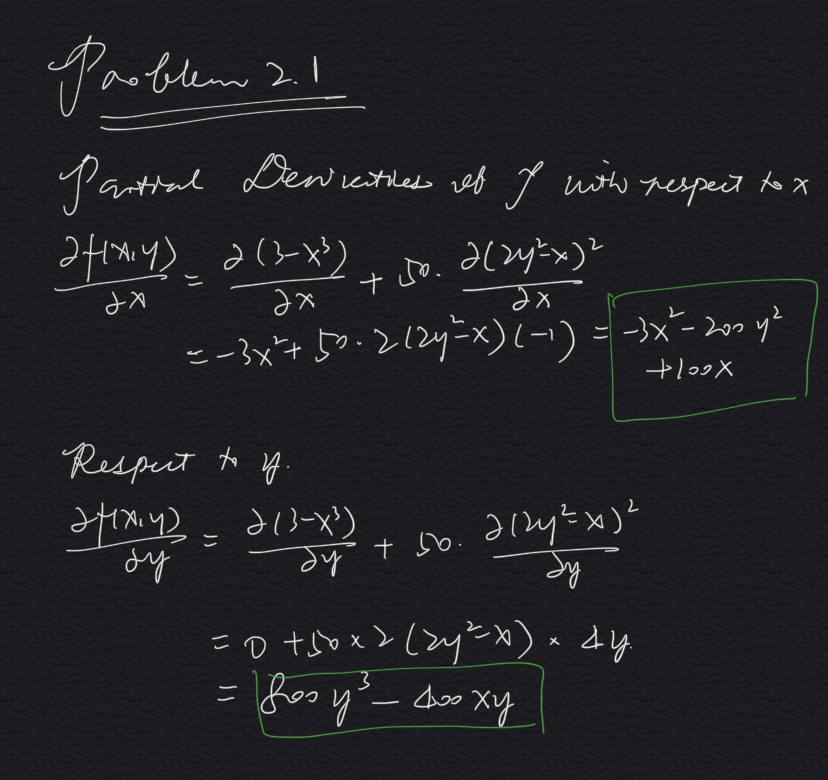 Problem 2.1
Partial Derivatives of f with respect to x
∂f(x,y)/∂x = ∂(3-x³)/∂x + 50. ∂(2y²-x)²/∂x
= -3x² + 50 . 2(2y²-x)(-1) = -3x² - 200y²
+100x
Respect to y.
∂f(x,y)/∂y = ∂(3-x³)/∂y + 50. ∂(2y²-x)²/∂y
= 0 + 50 × 2 (2y²-x) × 4y.
= 800y³ - 400xy